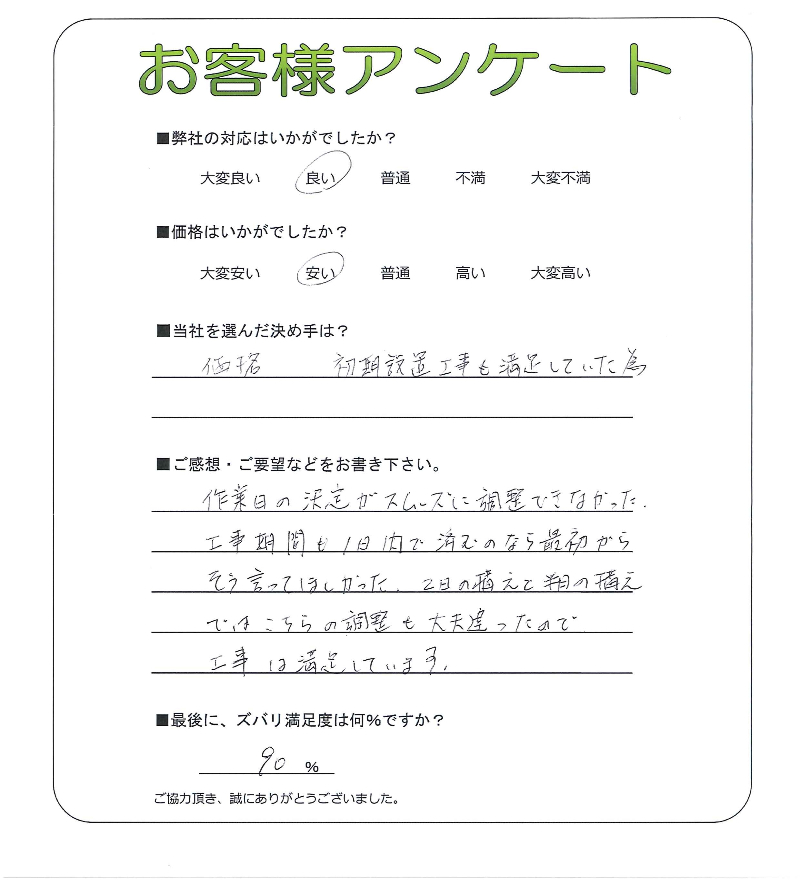 お客様アンケート
■弊社の対応はいかがでしたか？
大変良い 良い 普通 不満 大変不満
■価格はいかがでしたか？
大変安い 安い 普通 高い 大変高い
■当社を選んだ決め手は？
価格 初期設置工事も満足していた為
■ご感想・ご要望などをお書き下さい。
作業日の決定がスムーズに調整できなかった.
工事期間も1日内で済むのなら最初から
そう言ってほしかった. 2日の構えと半日の構え
ではこちらの調整も大夫違ったので
工事は満足しています.
■最後に、ズバリ満足度は何%ですか？
90 %
ご協力頂き、誠にありがとうございました。